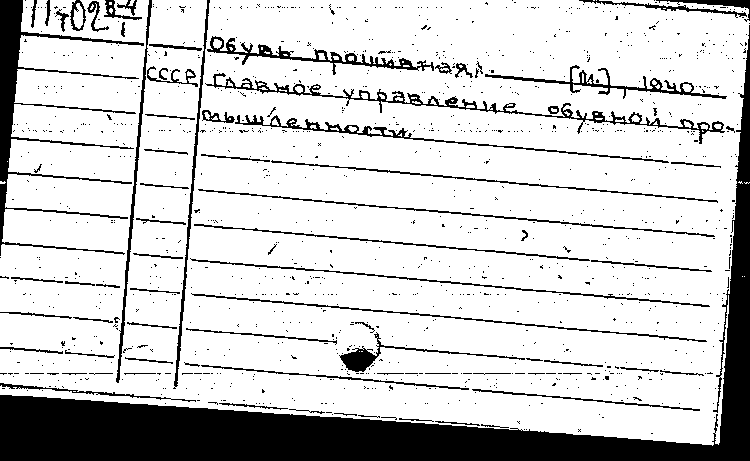 Обувь прошивная. [М.], 1940.
СССР. Главное управление обувной про-
мышленности.